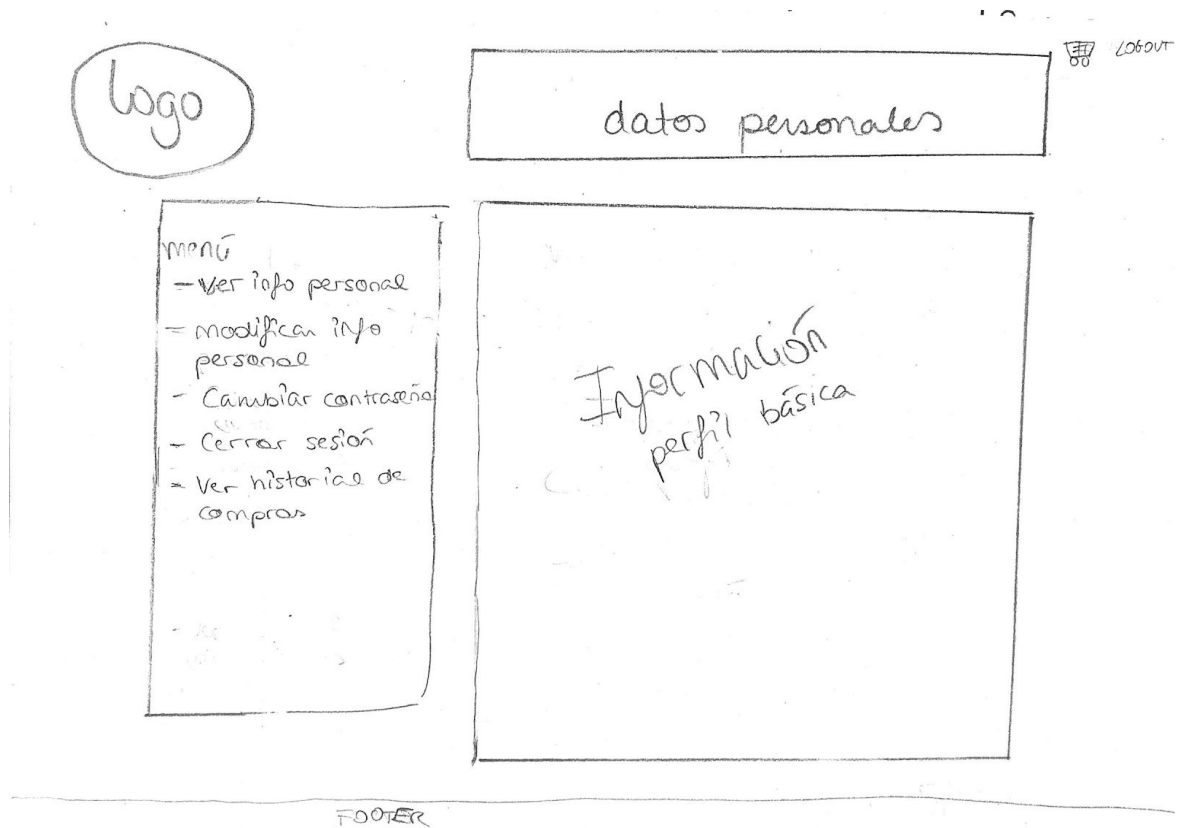 Logo
datos personales
LOGOUT
menú
- Ver info personal
- modificar info
personal
- Cambiar contraseña
- Cerrar sesión
- Ver historial de
compras
Información
perfil básica
FOOTER